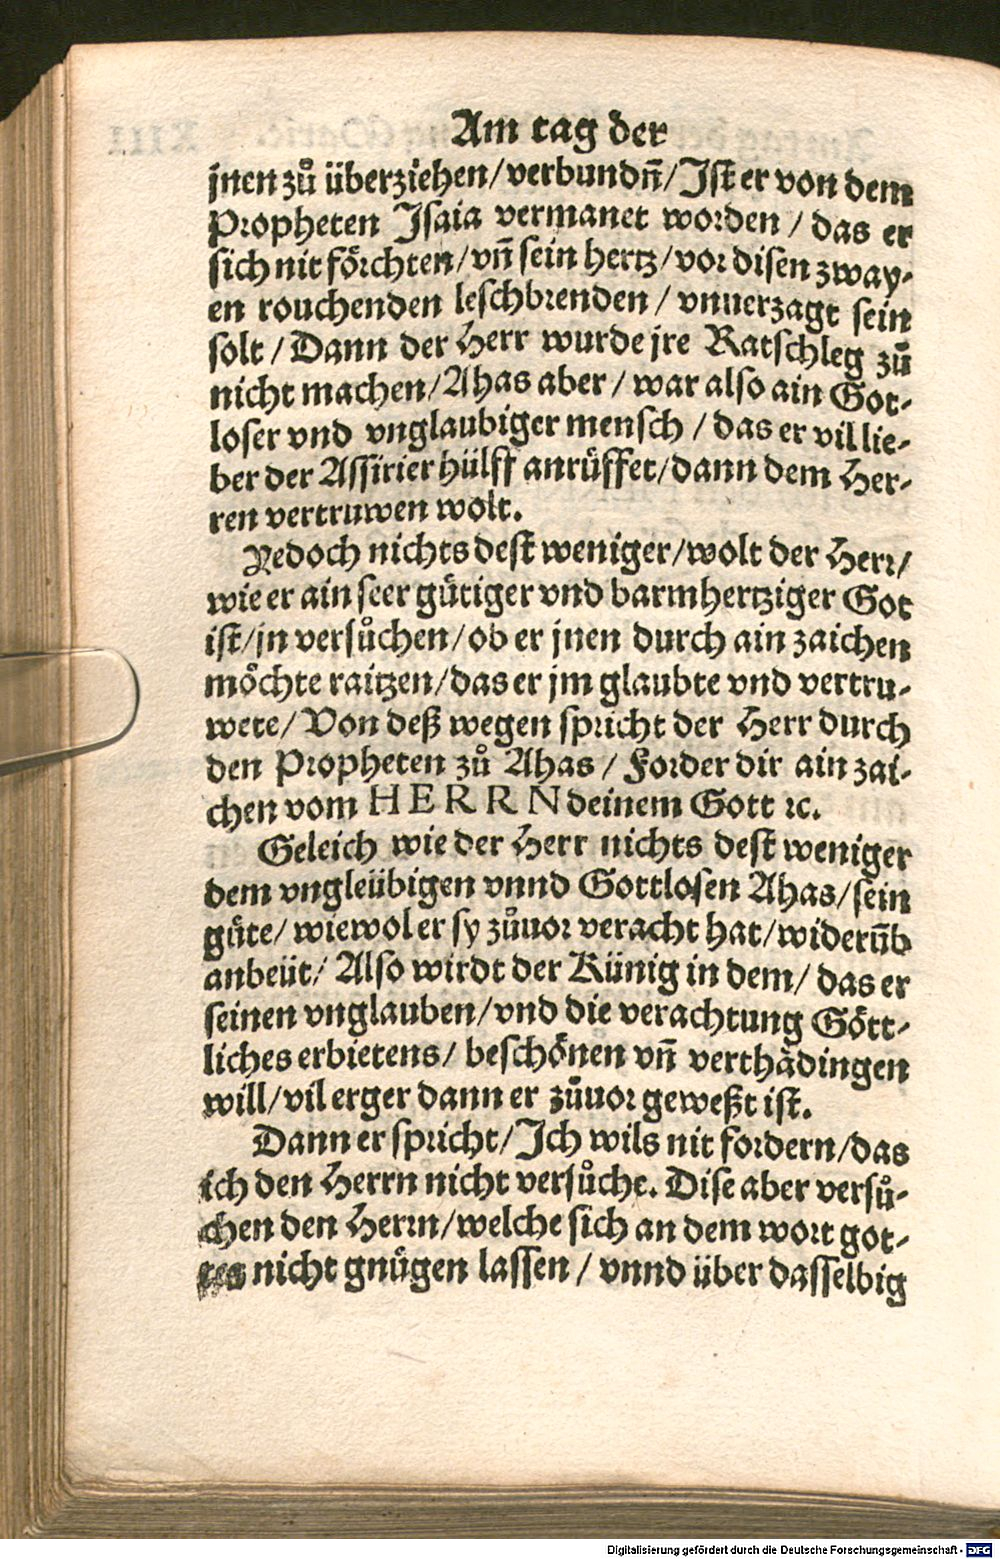 Am tag der
jnen zů überziehen/verbundn̄/Ist er von dem
Propheten Isaia vermanet worden / das er
sich nit förchten/vn̄ sein hertz/vor disen zway-
en rouchenden leschbrenden / vnuerzagt sein
solt / Dann der Herr wurde jre Ratschleg zů
nicht machen/Ahas aber / war also ain Got-
loser vnd vnglaubiger mensch / das er vil lie-
ber der Assirier hülff anrüffet/dann dem Her-
ren vertruwen wolt.
Yedoch nichts dest weniger/wolt der Herr/
wie er ain seer gütiger vnd barmhertziger Got
ist/jn versůchen/ob er jnen durch ain zaichen
möchte raitzen/das er jm glaubte vnd vertru-
wete/ Von deß wegen spricht der Herr durch
den Propheten zů Ahas / Forder dir ain zai-
chen vom HERRN deinem Gott ꝛc.
Geleich wie der Herr nichts dest weniger
dem vngleübigen vnnd Gottlosen Ahas/sein
güte/ wiewol er sy zůuor veracht hat/widerūb
anbeüt/ Also wirdt der Künig in dem/ das er
seinen vnglauben/vnd die verachtung Gött-
liches erbietens/ beschönen vn̄ verthädingen
will/vil erger dann er zůuor geweßt ist.
Dann er spricht/Ich wils nit fordern/das
ich den Herrn nicht versůche. Dise aber versů-
chen den Herrn/welche sich an dem wort got-
tes nicht gnügen lassen / vnnd über dasselbig
Digitalisierung gefördert durch die Deutsche Forschungsgemeinschaft - DFG